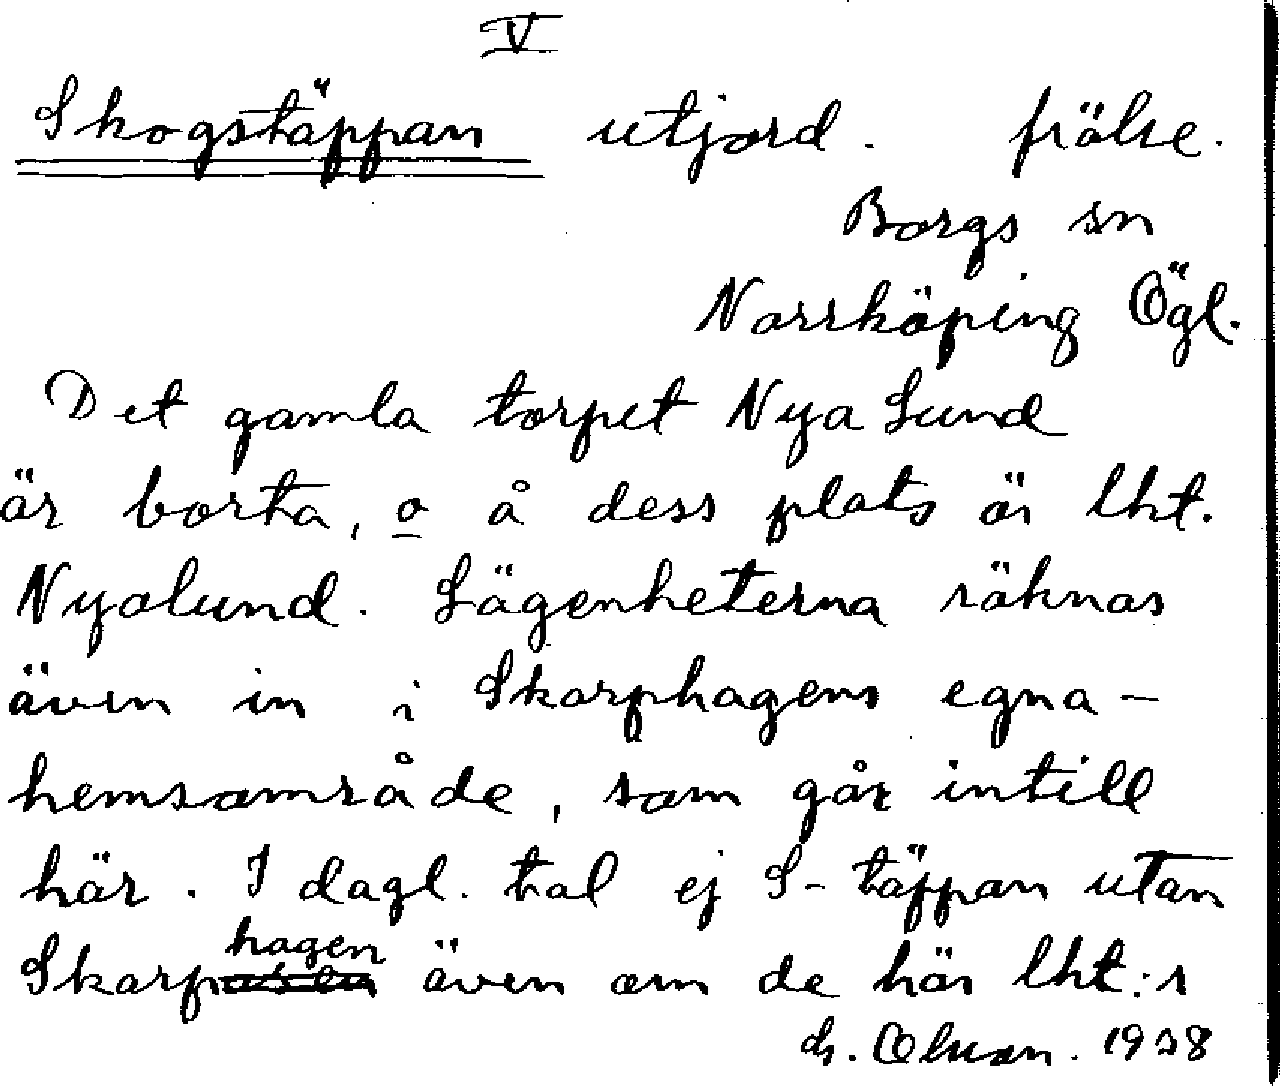 V
Skogstäppan utjord. frälse.
Borgs sn
Norrköping Ögl.
Det gamla torpet Nya Lund
är borta, o å dess plats är lht.
Nyalund. Lägenheterna räknas
även in i Skarphagens egna-
hemsområde, som går intill
här. I dagl. tal ej S-täppan utan
Skarphagen även om de här lht:r
G. Olsson. 1938